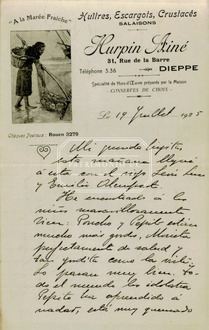 "A la Marée Fraîche"
Huîtres, Escargots, Crustacés
SALAISONS
Hurpin Aîné
31, Rue de la Barre
Téléphone 3.36
DIEPPE
Spécialité de Hors-d'Œuvre préparés par la Maison
CONSERVES DE CHOIX
Chèques Postaux : Rouen 3279
Le 19 Juillet 1925
Mi querido
esta mañana llegué
a esta con el hijo Luis
y Emilio
He encontrado a los
niños maravillosamente
bien. Poncho y Pepito están
mucho más gordos,
perfectamente de salud y
tan como la
Lo pasan muy bien. To-
do el mundo los idolatra
Pepito ha aprendido a
nadar, está muy quemado